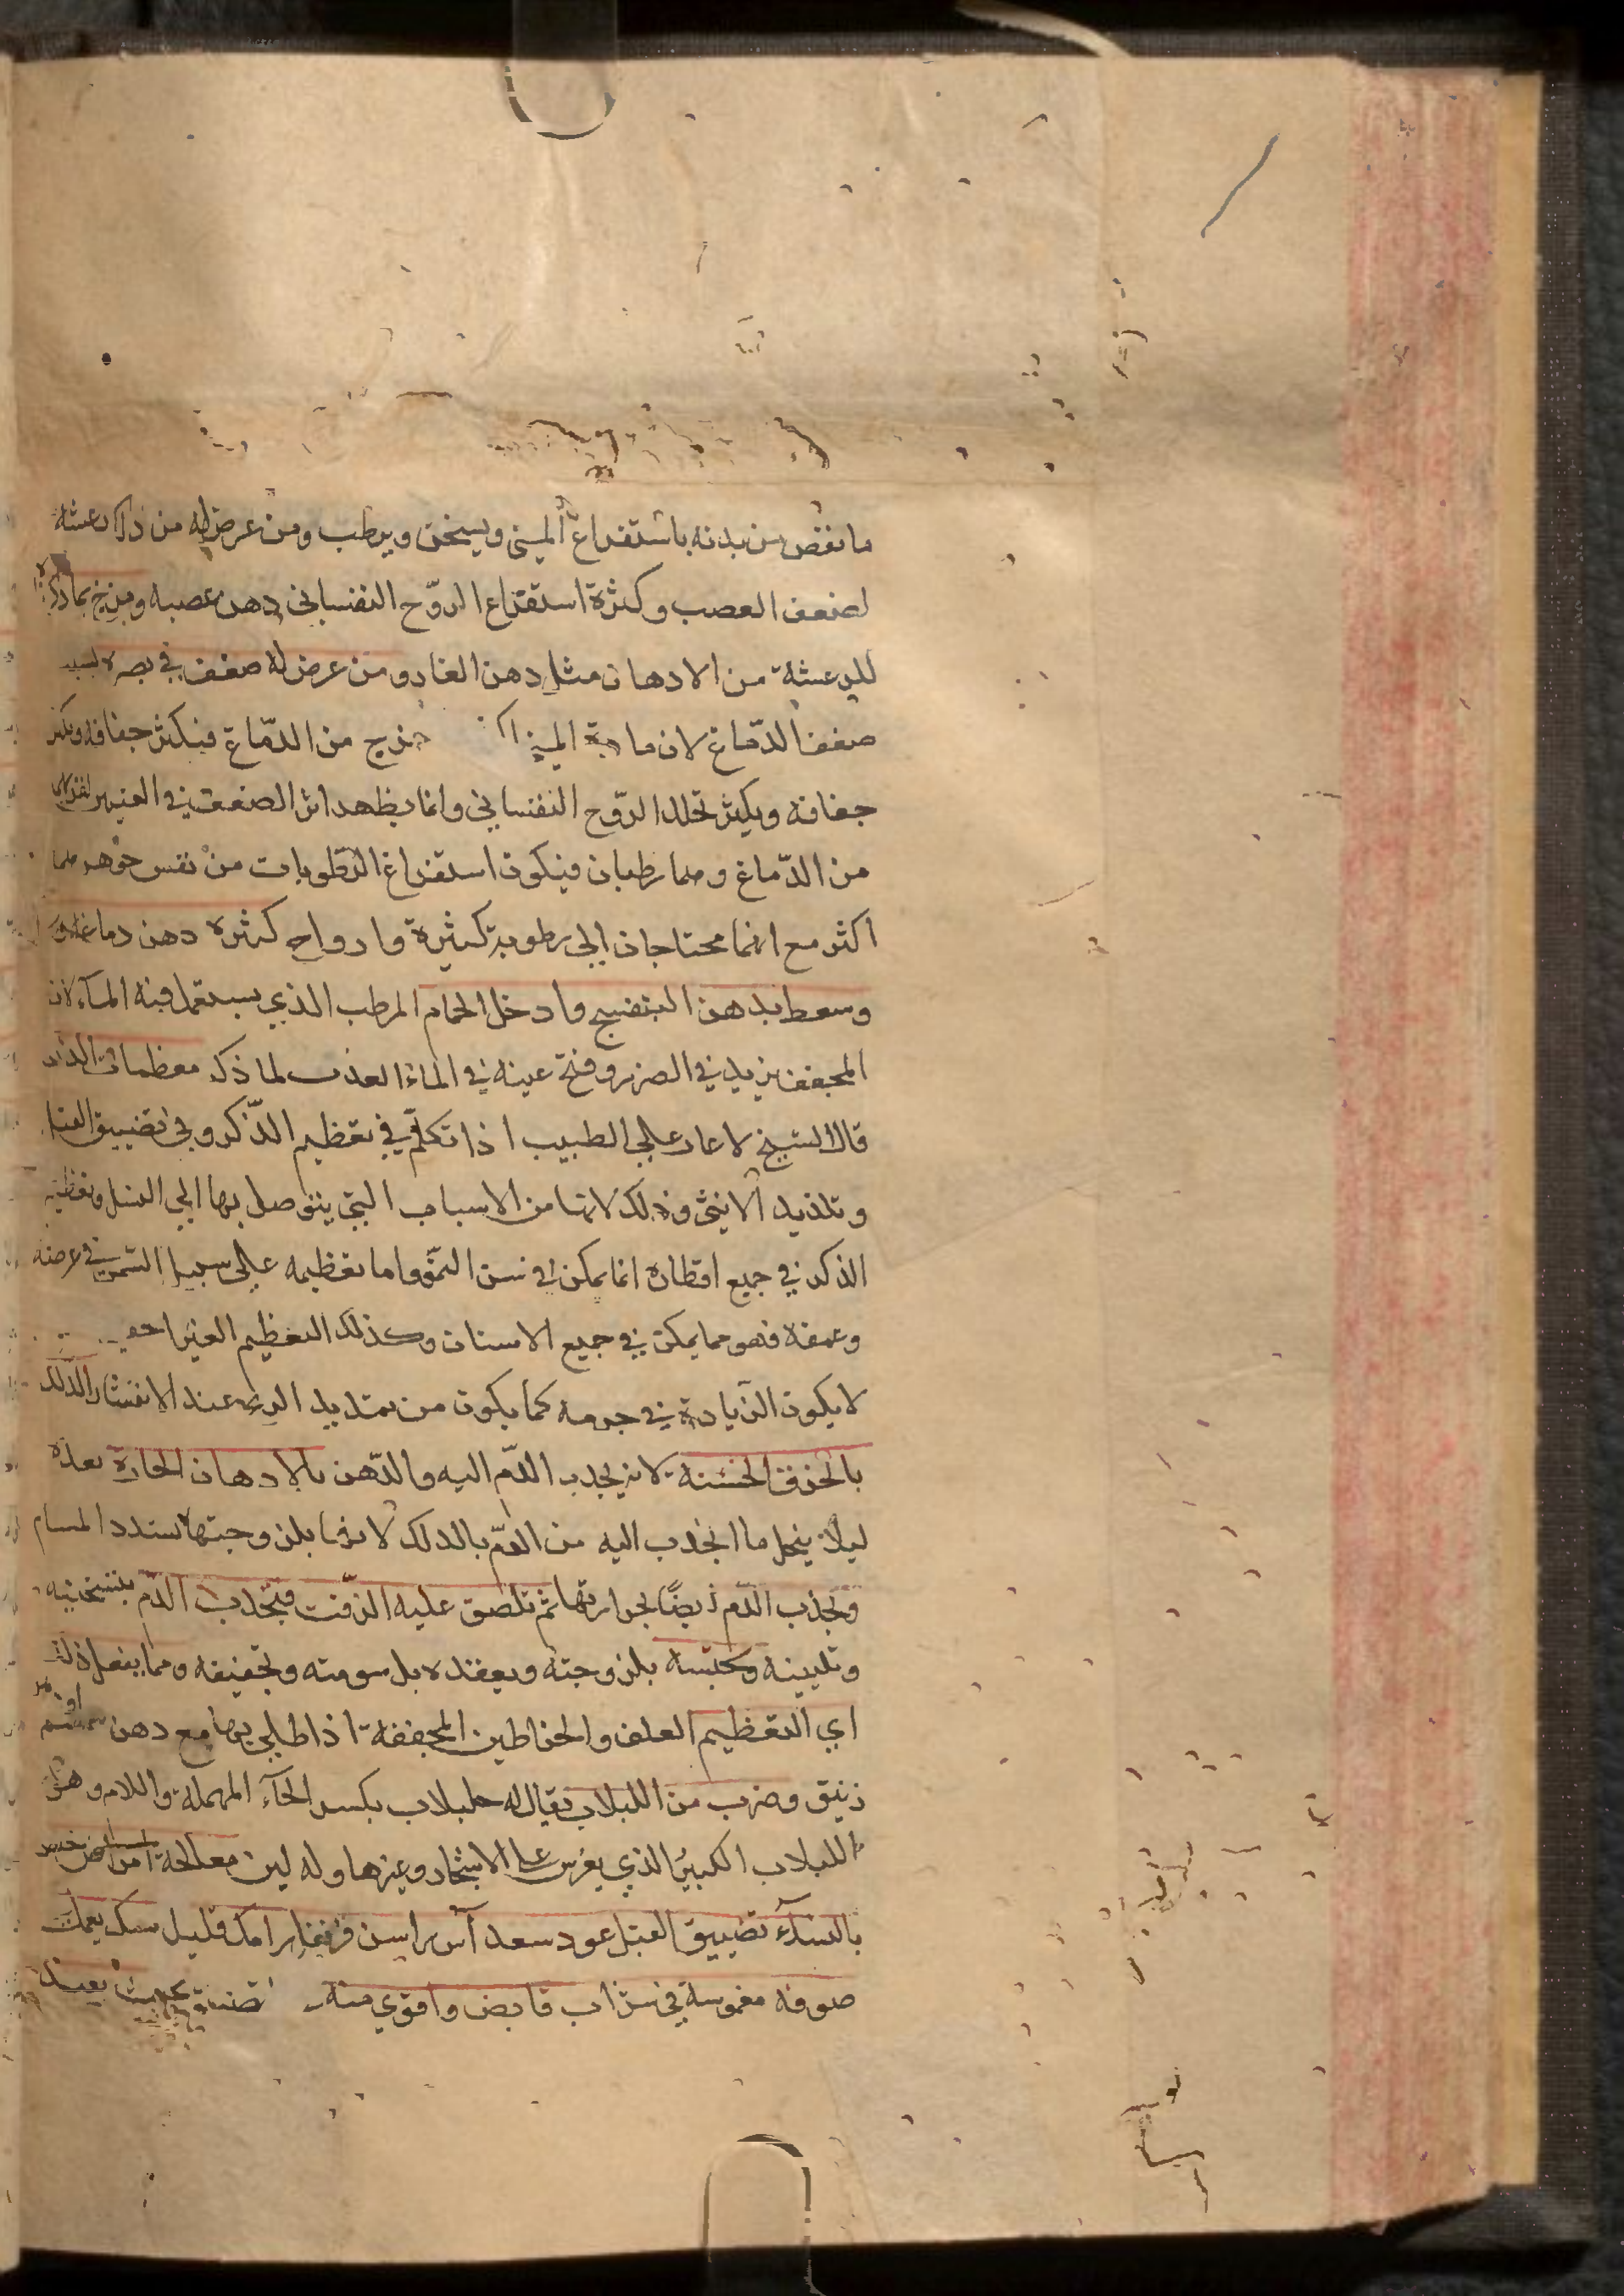 ما نقص من بدنه باستفراغ المني ويسخن ويرطب ومن عرض له من ذلك رعشة
لضعف العصب وكثرة استفراغ الروح النفساني دهن عصبه ومزخ بما ذكر
للرعشة من الادهان مثل دهن الغار ومن عرض له ضعف في بصره لسبب
ضعف الدماغ لان مادة المني من الدماغ فيكثر جفافه ويكثر
جفافه ويكثر تحلل الروح النفساني وانما يظهر اثر الضعف في العينين
من الدماغ وهما رطبان فيكون استفراغ الرطوبات من نفس جوهرهما
اكثر مع انهما محتاجان الي رطوبة كثيرة وارواح كثيرة دهن دماغه
وسعط بدهن البنفسج وادخل الحمام المرطب الذي يستعمل فيه المآء لان
المجفف يزيد في الضرر وفتح عينه في الماء العذب لما ذكر معظمات الذكر
قال الشيخ لا عار علي الطبيب اذا تكلم في تعظيم الذكر وفي تضييق القبل
وتلذيذ الانثي وذلك لانها من الاسباب التي يتوصل بها الي النسل وتعظيم
الذكر في جميع اقطاره انما يمكن في سن النمو واما تعظيمه علي سبيل السمن في عرضه
وعمقه فهو مما يمكن في جميع الاسنان وكذلك التعظيم الغير
لا يكون الزيادة في جرمه كما يكون من تمديد الريح عند الانتشار الدلك
بالخرق الخشنة لانه يجذب الدم اليه والدهن بالادهان الحارة بعده
ليلا ينحل ما انجذب اليه من الدم بالدلك لانها بلزوجتها تسدد المسام
وتجذب الدم ايضاً بحرارتها ثم تلصق عليه الزفت فيجذب الدم بتسخينه
وتليينه ويحبسه بلزوجته ويعقده بدسومته وتجفيفه ومما يفعل ذلك
اي التعظيم العلق والخراطين المجففة اذا طلي بها مع دهن سمسم او دهن
زنبق وضرب من اللبلاب يقال له حلبلاب بكسر الحآء المهملة واللام وهو
اللبلاب الكبير الذي يغرس علي الاشجار وغيرها وله لبن معالجة امراض تختص
بالنسآء تضييق القبل عود سعد آس راسن قرنفل رامك قليل سك يعمل
صوفة مغموسة في شراب قابض واقوي منه